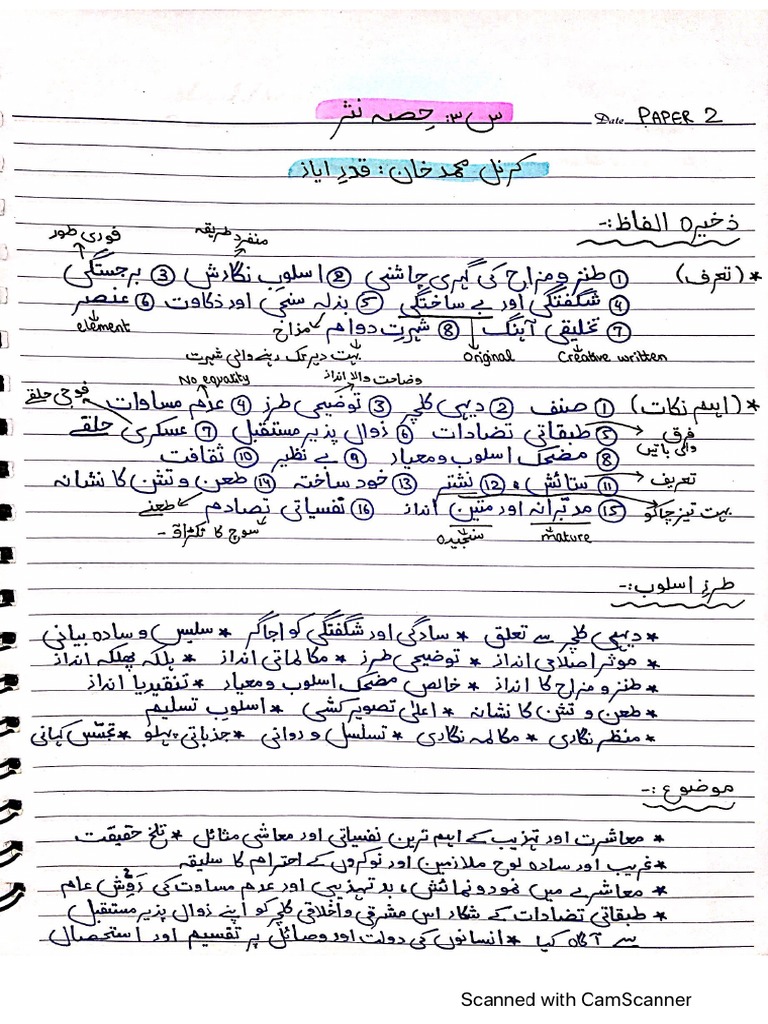 س ۳: حِصہ نثر
Date PAPER 2
کرنل محمد خان: قدرِ ایاز
ذخیرہ الفاظ:-
فوری طور منفرد طریقہ
* (تعرف) ① طنز و مزاح کی گہری چاشنی ② اسلوب نگارش ③ برجستگی
④ شگفتگی اور بے ساختگی ⑤ بذلہ سنجی اور ذکاوت ⑥ عنصر
⑦ تخلیقی آہنگ ⑧ شہرتِ دوام مزاح element
Creative written Original بہت دیر تک رہنے والی شہرت
وضاحت والا انداز No equality
* (اہم نکات) ① صنف ② دیہی کلچر ③ توضیحی طرز ④ عدم مساوات فوجی حلقے
⑤ طبقاتی تضادات ⑥ زوال پذیر مستقبل ⑦ عسکری حلقے
فرق والی باتیں
⑧ مضحک اسلوب و معیار ⑨ بے نظیر ⑩ ثقافت
تعریف ⑪ ستائش ⑫ نشتر ⑬ خود ساختہ ⑭ طعن و تش کا نشانہ
بہت تیز چاکو ⑮ مدبّرانہ اور متین انداز ⑯ نفسیاتی تصادم طعنے
mature سنجیدہ سوچ کا ٹکراؤ -
طرزِ اسلوب:-
* دیہی کلچر سے تعلق * سادگی اور شگفتگی کو اجاگر * سلیس و سادہ بیانی
* موثر اصلاحی انداز * توضیحی طرز * مکالماتی انداز * ہلکہ پھلکہ انداز
* طنز و مزاح کا انداز * خالص مضحک اسلوب و معیار * تنقیدیا انداز
* طعن و تش کا نشانہ * اعلیٰ تصویر کشی * اسلوبِ تسلیم
* منظر نگاری * مکالمہ نگاری * تسلسل و روانی * جذباتی پہلو * تجسّس کہانی
موضوع:-
* معاشرت اور تہزیب کے اہم ترین نفسیاتی اور معاشی مثائل * تلخ حقیقت
* غریب اور سادہ لوح ملازمین اور نوکروں کے احترام کا سلیقہ
* معاشرے میں نمود و نمائش، بد تہذیبی اور عدم مساوت کی رَوِش عام
* طبقاتی تضادات کے شکار اس مشرقی و اخلاقی کلچر کو اپنے زوال پذیر مستقبل
سے آگاہ کیا * انسانوں کی دولت اور وصائل پر تقسیم اور استحصال
Scanned with CamScanner